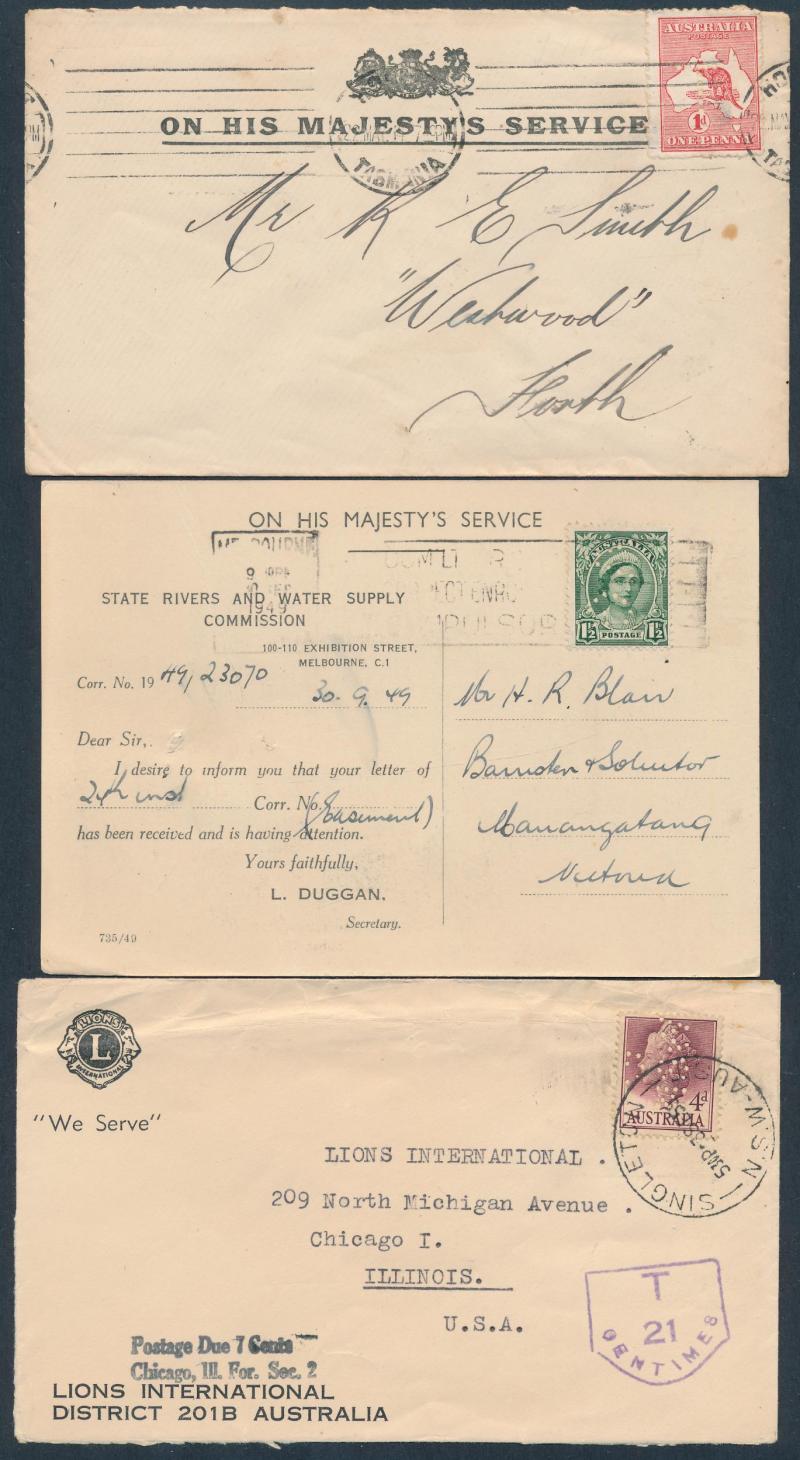 AUSTRALIA
POSTAGE
1d
ONE PENNY
ON HIS MAJESTY'S SERVICE
TASMANIA
Mr K E Smith
"Westwood"
ON HIS MAJESTY'S SERVICE
MELBOURNE
1949
AUSTRALIA
1½ POSTAGE 1½
STATE RIVERS AND WATER SUPPLY
COMMISSION
100-110 EXHIBITION STREET,
MELBOURNE, C.1
Corr. No. 19 49/23070
30. 9. 49
Dear Sir,
I desire to inform you that your letter of
24th inst Corr. No. (Easement)
has been received and is having attention.
Yours faithfully,
L. DUGGAN,
Secretary.
735/49
Mr H. R. Blair
Barrister & Solicitor
Manangatang
Victoria
LIONS
L
INTERNATIONAL
"We Serve"
4d
AUSTRALIA
SINGLETON
N.S.W-AUST
LIONS INTERNATIONAL .
209 North Michigan Avenue .
Chicago I.
ILLINOIS.
U.S.A.
T
21
CENTIMES
Postage Due 7 Cents
Chicago, Ill. For. Sec. 2
LIONS INTERNATIONAL
DISTRICT 201B AUSTRALIA